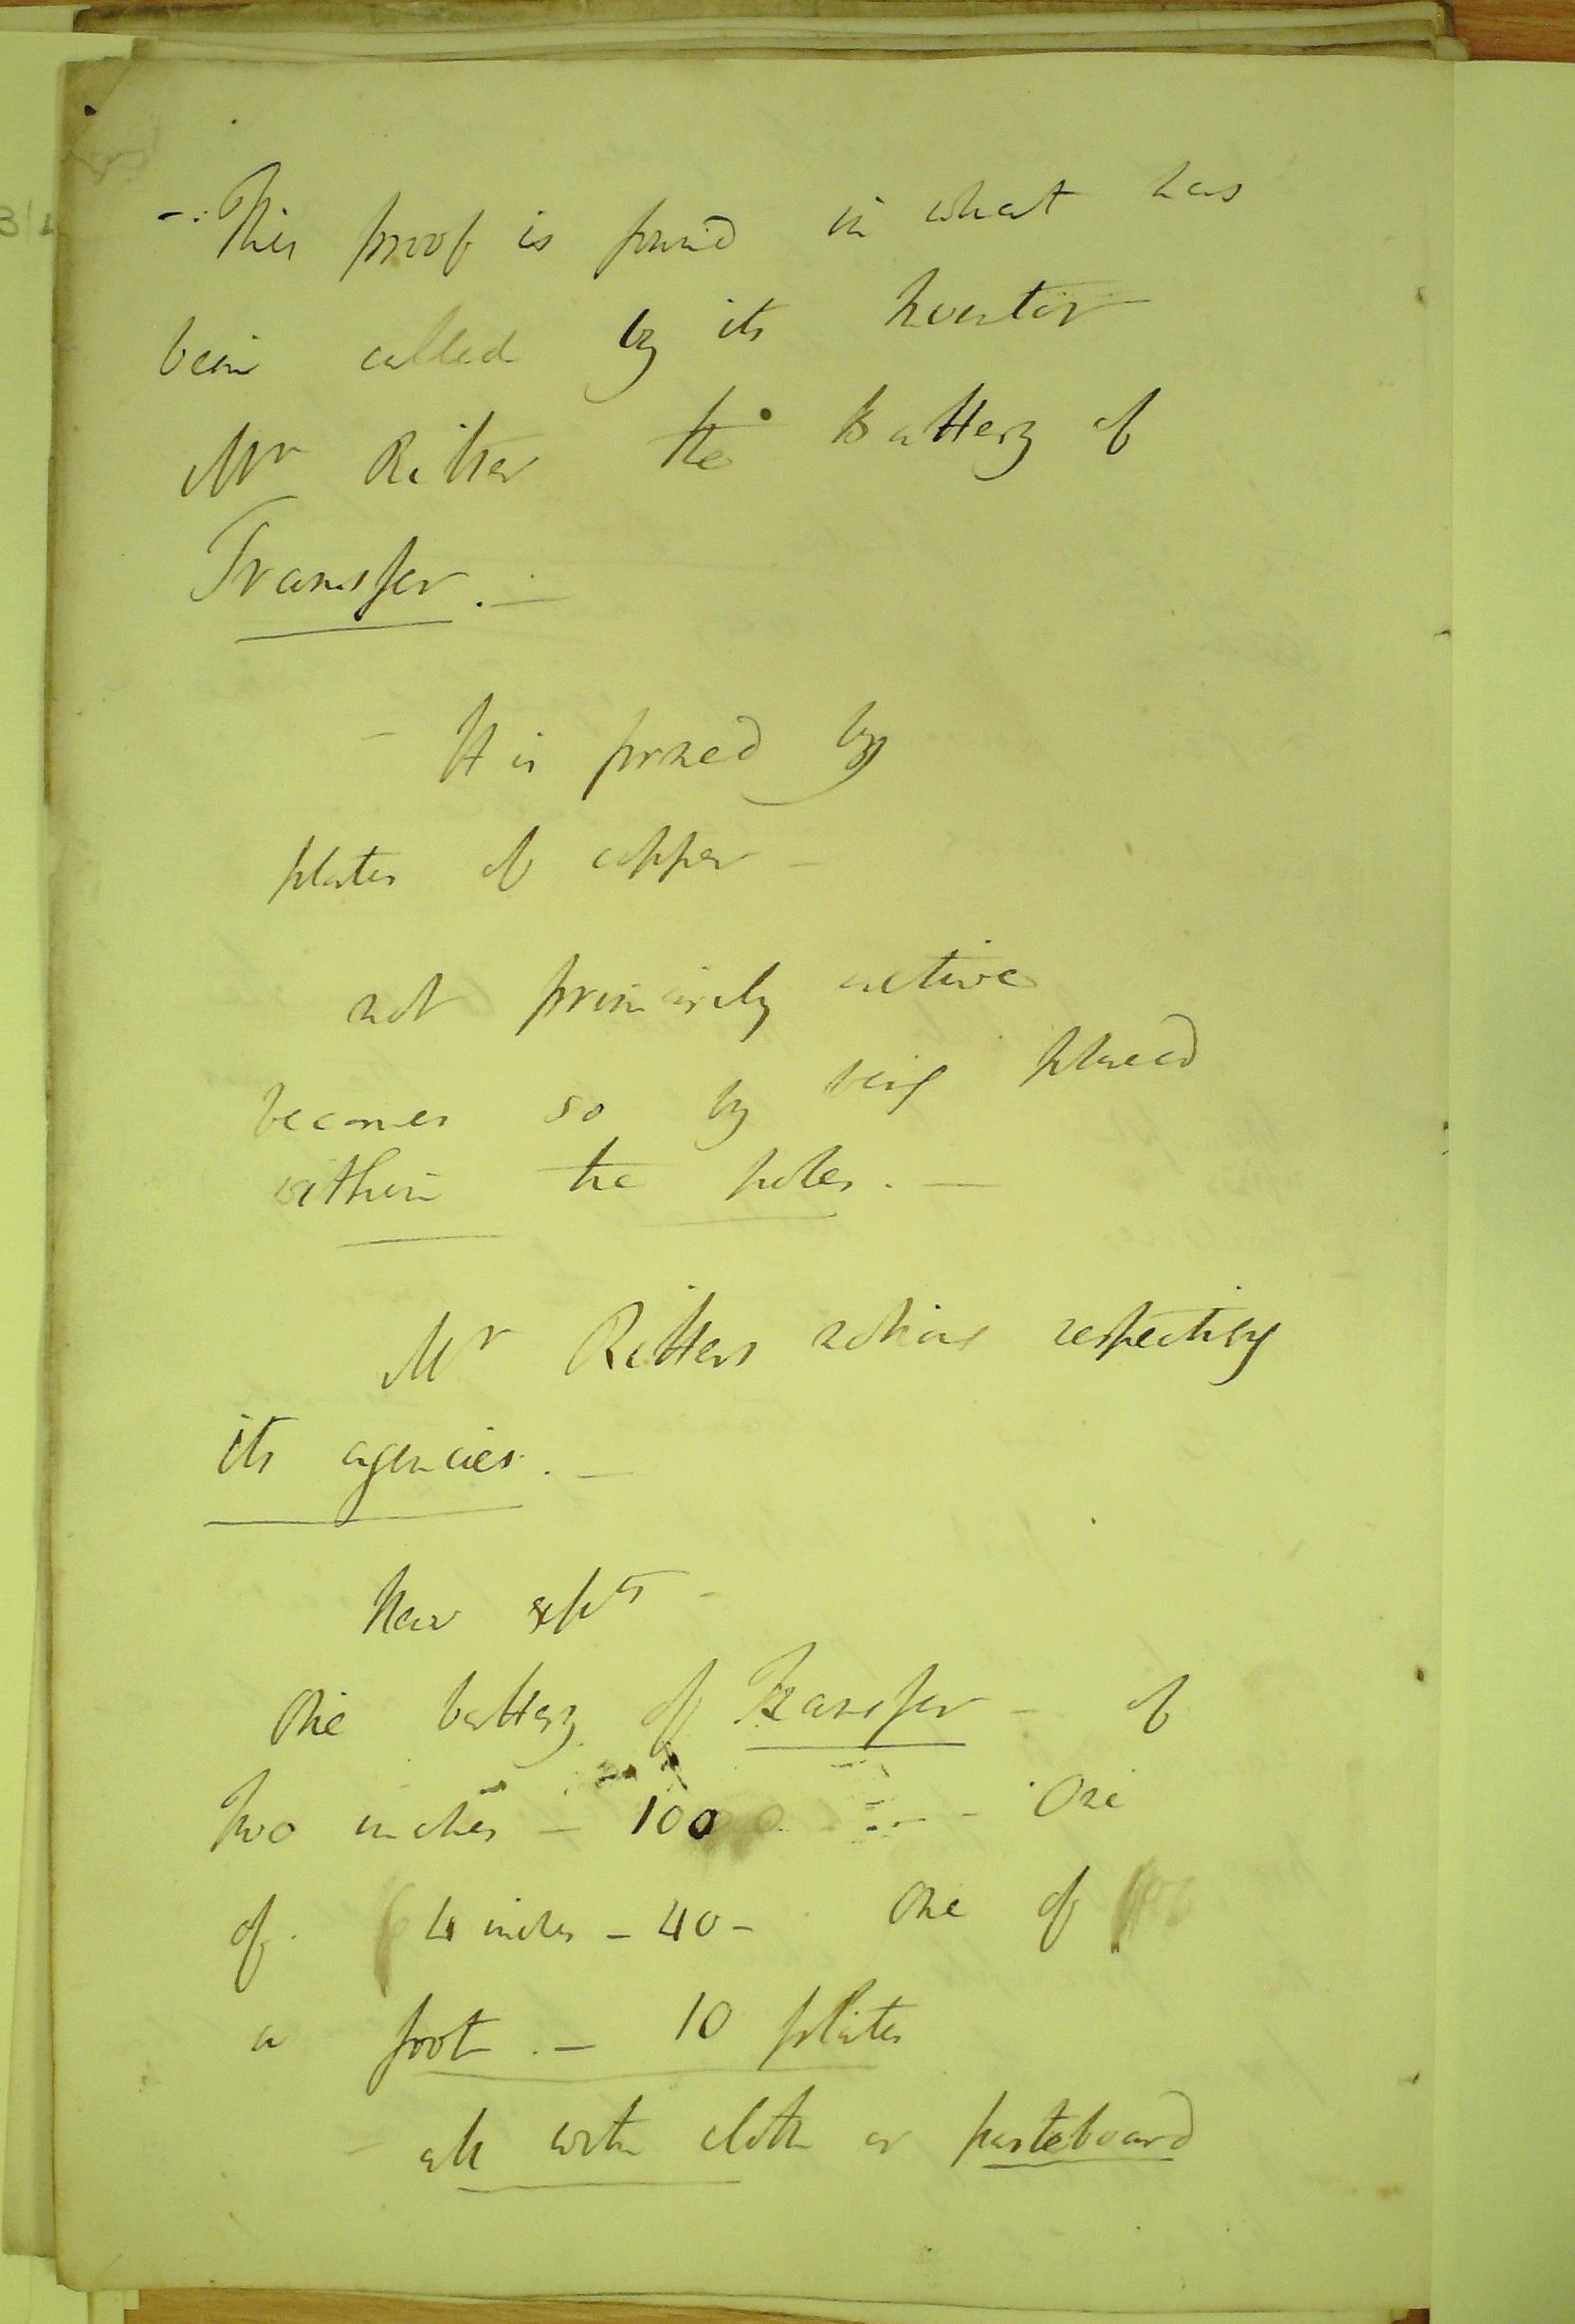 -. This proof is found in what has
been called by its Inventor
Mr Ritter the Battery of
Transfer. —
- It is formed by
plates of copper -
not primarily active
becomes so by being placed
within the poles. —
Mr Ritters notions respecting
its agencies. —
New expts -
One battery of Transfer - of
Two inches - 100 - One
of 4 inches - 40 - One of
a foot. - 10 plates
- all with cloth or pasteboard